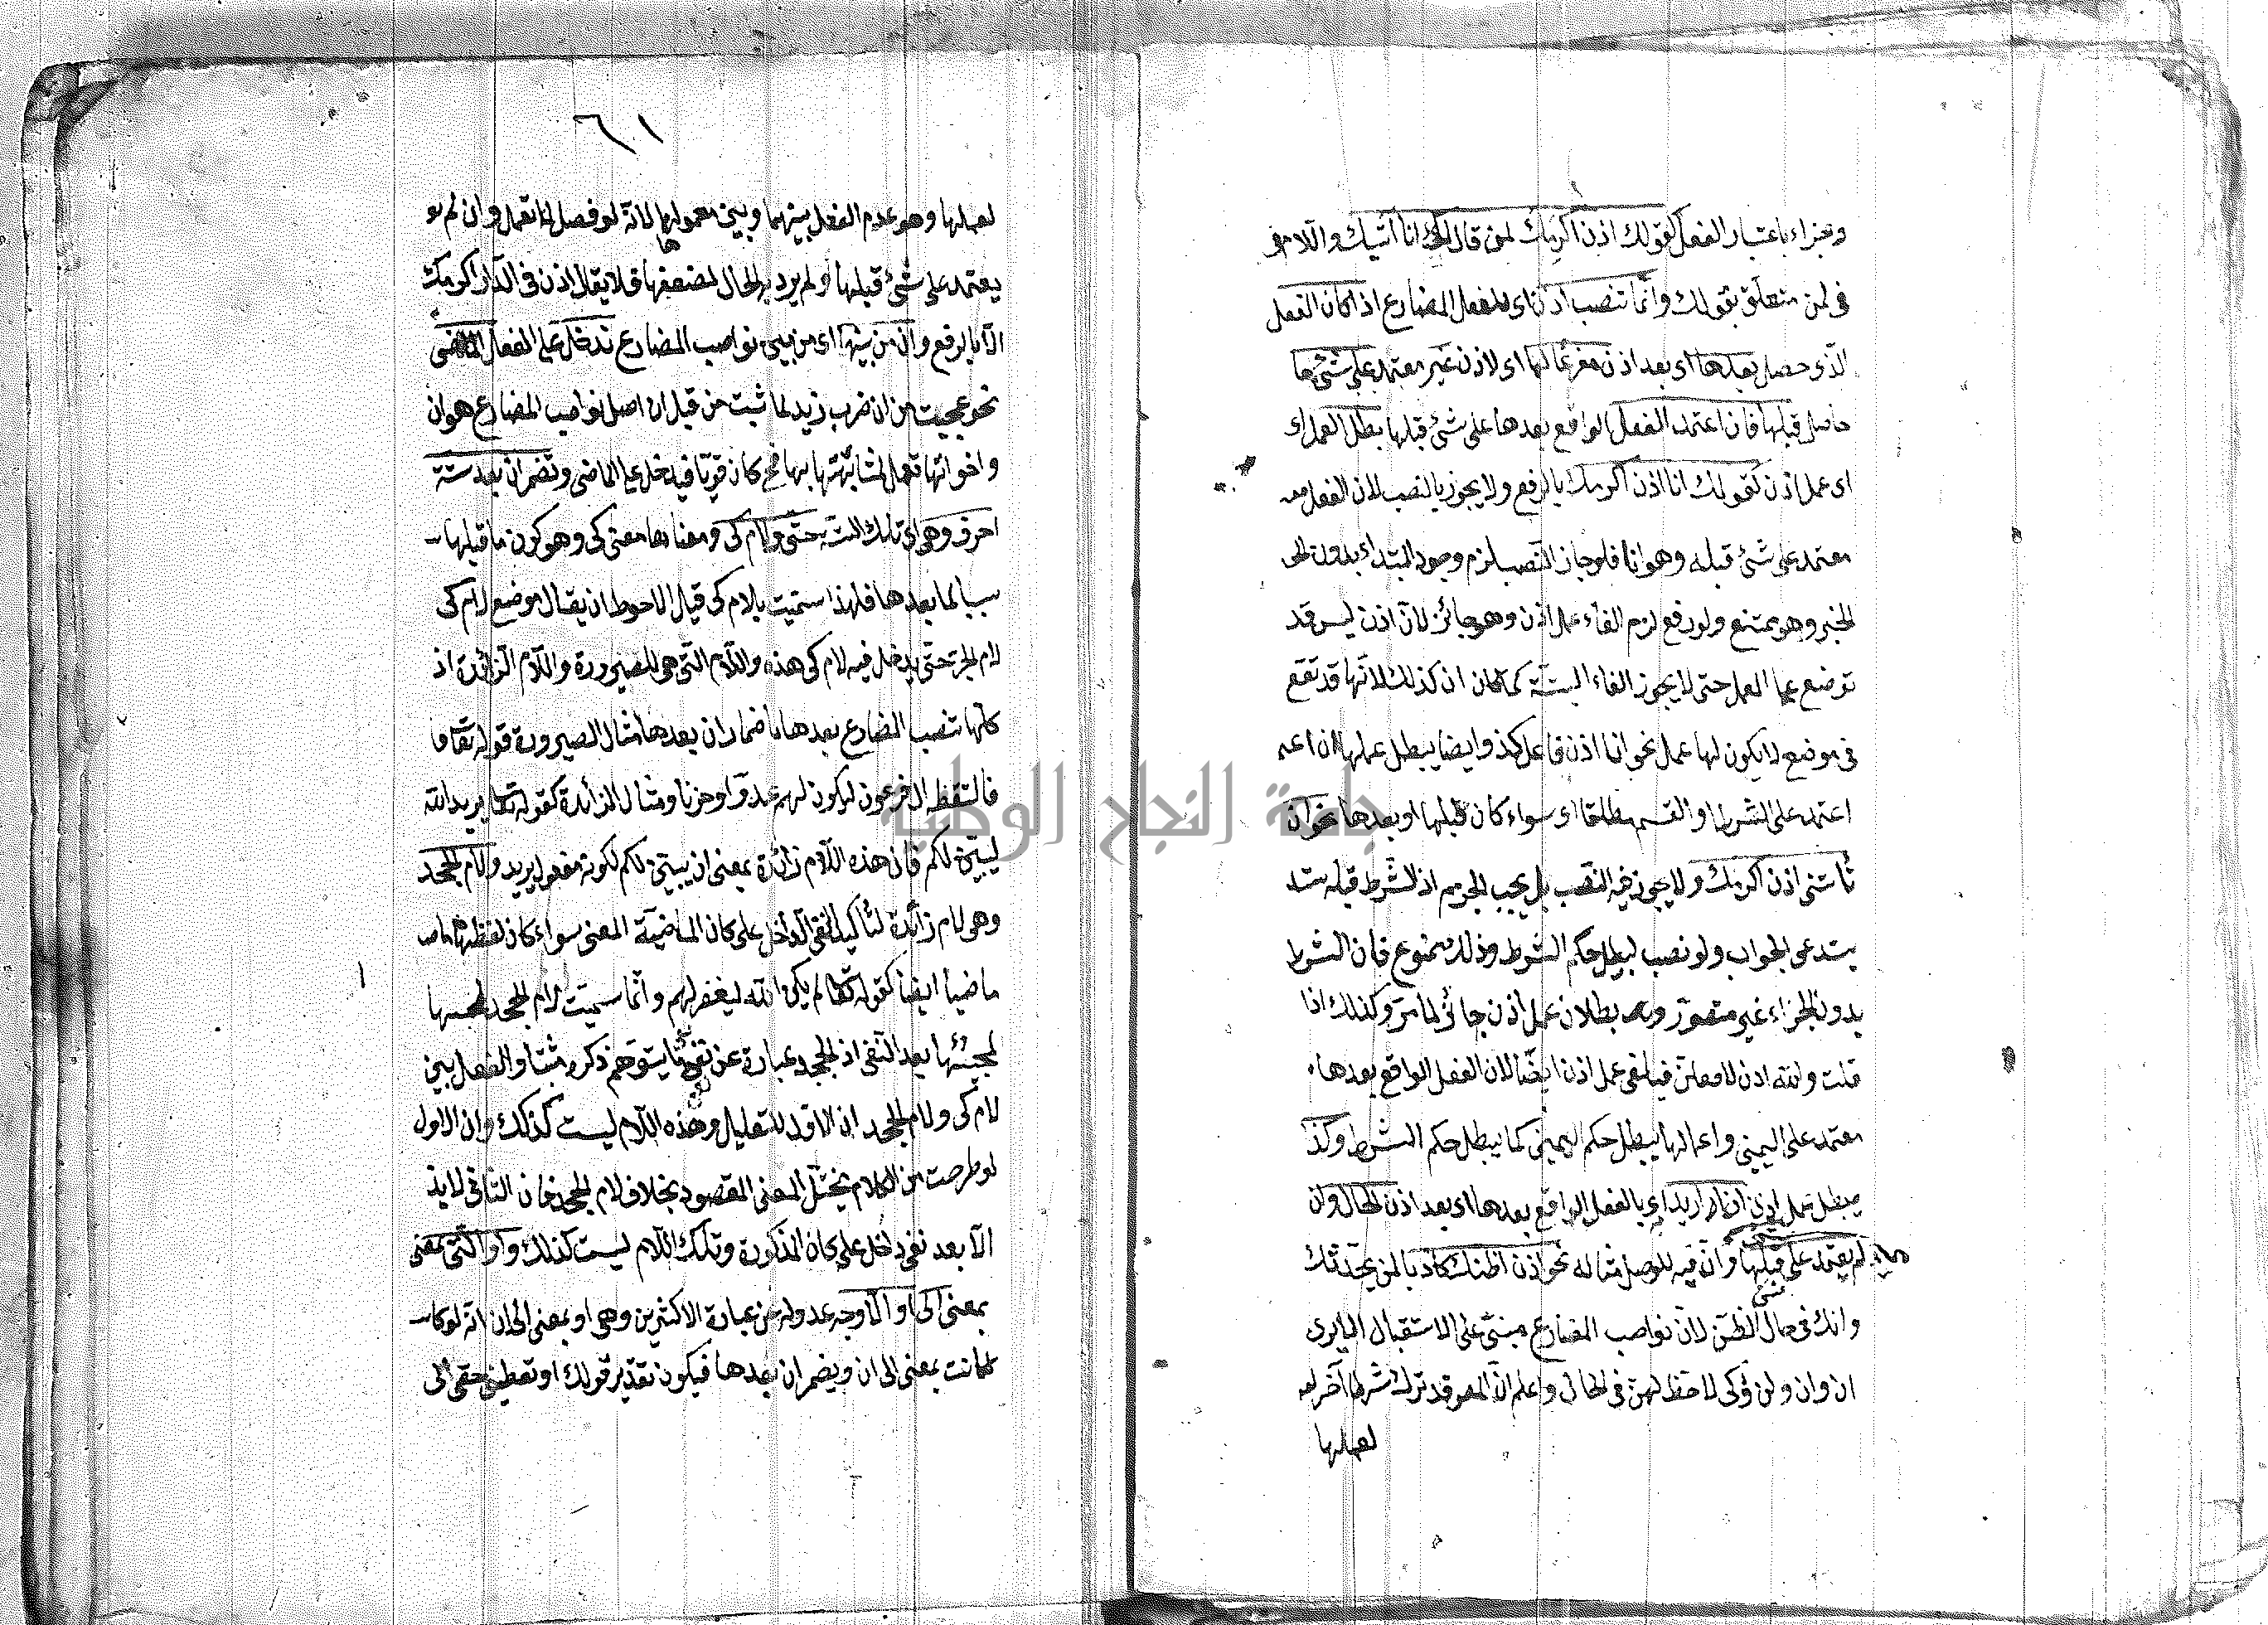 وجزاء باعتبار الفعل كقولك اذن اكرمك لمن قال لك انا آتيك واللام
في لمن متعلق بقولك وانما تنصب اذن اى للفعل المضارع اذا كان الفعل
الذى حصل بعدها اى بعد اذن مفرغا لها اى لاذن غير معتمد على شئ
حاصل قبلها فان اعتمد الفعل الواقع بعدها على شئ قبلها بطل العمل اى
اى عمل اذن كقولك انا اذن اكرمك بالرفع ولا يجوز بالنصب لان الفعل معه
معتمد على شئ قبله وهو انا فلو جاز النصب لزم وجود المبتداء بدون
الخبر وهو ممتنع ولو رفع لزم الغاء عمل اذن وهو جائز لان اذن ليس قد
توضع عما العمل حتى لا يجوز الغاء البتة كما كان ان كذلك لانها قد تقع
فى موضع لا يكون لها عمل نحو انا اذن فاعل كذا وايضا يبطل عملها ان اعتمـ
اعتمد على الشرط او القسم مطلقا اى سواء كان قبلها او بعدها نحو ان
تأتنى اذن اكرمك ولا يجوز فيه النصب بل يجب الجزم اذ الشرط قبله يستد
يستدعى الجواب ولو نصب لبطل حكم الشرط وذلك ممنوع فان الشرط
بدون الجزاء غير متصور وبطلان عمل اذن جائز لما مر وكذلك اذا
قلت والله اذن لافعلن فيلغى عمل اذن ايضا لان الفعل الواقع بعدها
معتمد على اليمين واعمالها يبطل حكم اليمين كما يبطل حكم الشرط وكذا
يبطل عمل اذن اذا اريد اى بالفعل الواقع بعدها اى بعد اذن الحال وان
لم يعتمد على شئ قبلها وان فيه للوصل مثاله نحو اذن اظنك كاذبا لمن يحدثك
وانك فى حال الظن لان نواصب المضارع مبنى على الاستقبال الا يرى
ان وان ولن وكى لا حظ لهن فى الحال واعلم ان المص قد ترك شرطا آخر لعـ
لعملها
٦١
لعملها وهو عدم الفصل بينهما وبين معمولها لانه لو فصل لما تعمل وان لم
يعتمد على شئ قبلها ولم يرد بها الحال لضعفها فلا يقال اذن فى الدار اكرمك
الا بالرفع وان من بينها اى من بين نواصب المضارع تدخل على الفعل الماضى
نحو عجبت من ان ضرب زيد لما ثبت من قبل ان اصل نواصب المضارع هو ان
واخواتها تعمل لمشابهتها بها فح كان قويا فيدخل على الماضى وتضمر ان بعد ستة
احرف وهى اى تلك الستة حتى ولام كى ومعناها معنى كى وهو كون ما قبلها
سببا لما بعدها فلهذا سميت بلام كى قيل الاحوط ان يقال موضع لام كى
لام الجر حتى يدخل فيه لام كى هذه واللام التى هى للصيرورة واللام الزائدة اذ
كلها تنصب المضارع بعدها باضمار ان بعدها مثال الصيرورة قوله تعالى
فالتقطه ال فرعون ليكون لهم عدوا وحزنا ومثال الزائدة كقوله تعالى يريد الله
ليبين لكم فان هذه اللام زائدة بمعنى ان يبين لكم لكونه مفعول يريد ولام الجحد
وهى لام زائدة لتأكيد النفى الداخل على كان الماضية المعنى سواء كان لفظها
ماضيا ايضا كقوله تعالى لم يكن الله ليغفر لهم وانما سميت لام الجحد
لمجيئها بعد النفى اذ الجحد عبارة عن نفى ذكره مثبتا والفصل بين
لام كى ولام الجحد ان الاول للتعليل وهذه اللام ليست كذلك وان الاول
لو طرحت من الكلام يختل المعنى المقصود بخلاف لام الجحد فان الثانى لا يذ
الا بعد نفى دخل على كان المذكورة وتلك اللام ليست كذلك واو التى بمعنى
بمعنى الى او الا وجه عدوله عن عبارة الاكثرين وهى او بمعنى الى ان انه لو كا
كانت بمعنى الى ان ويضمر ان بعدها فيكون تقدير قولك او تعطينى حقى الى
جامعة النجاح الوطنية